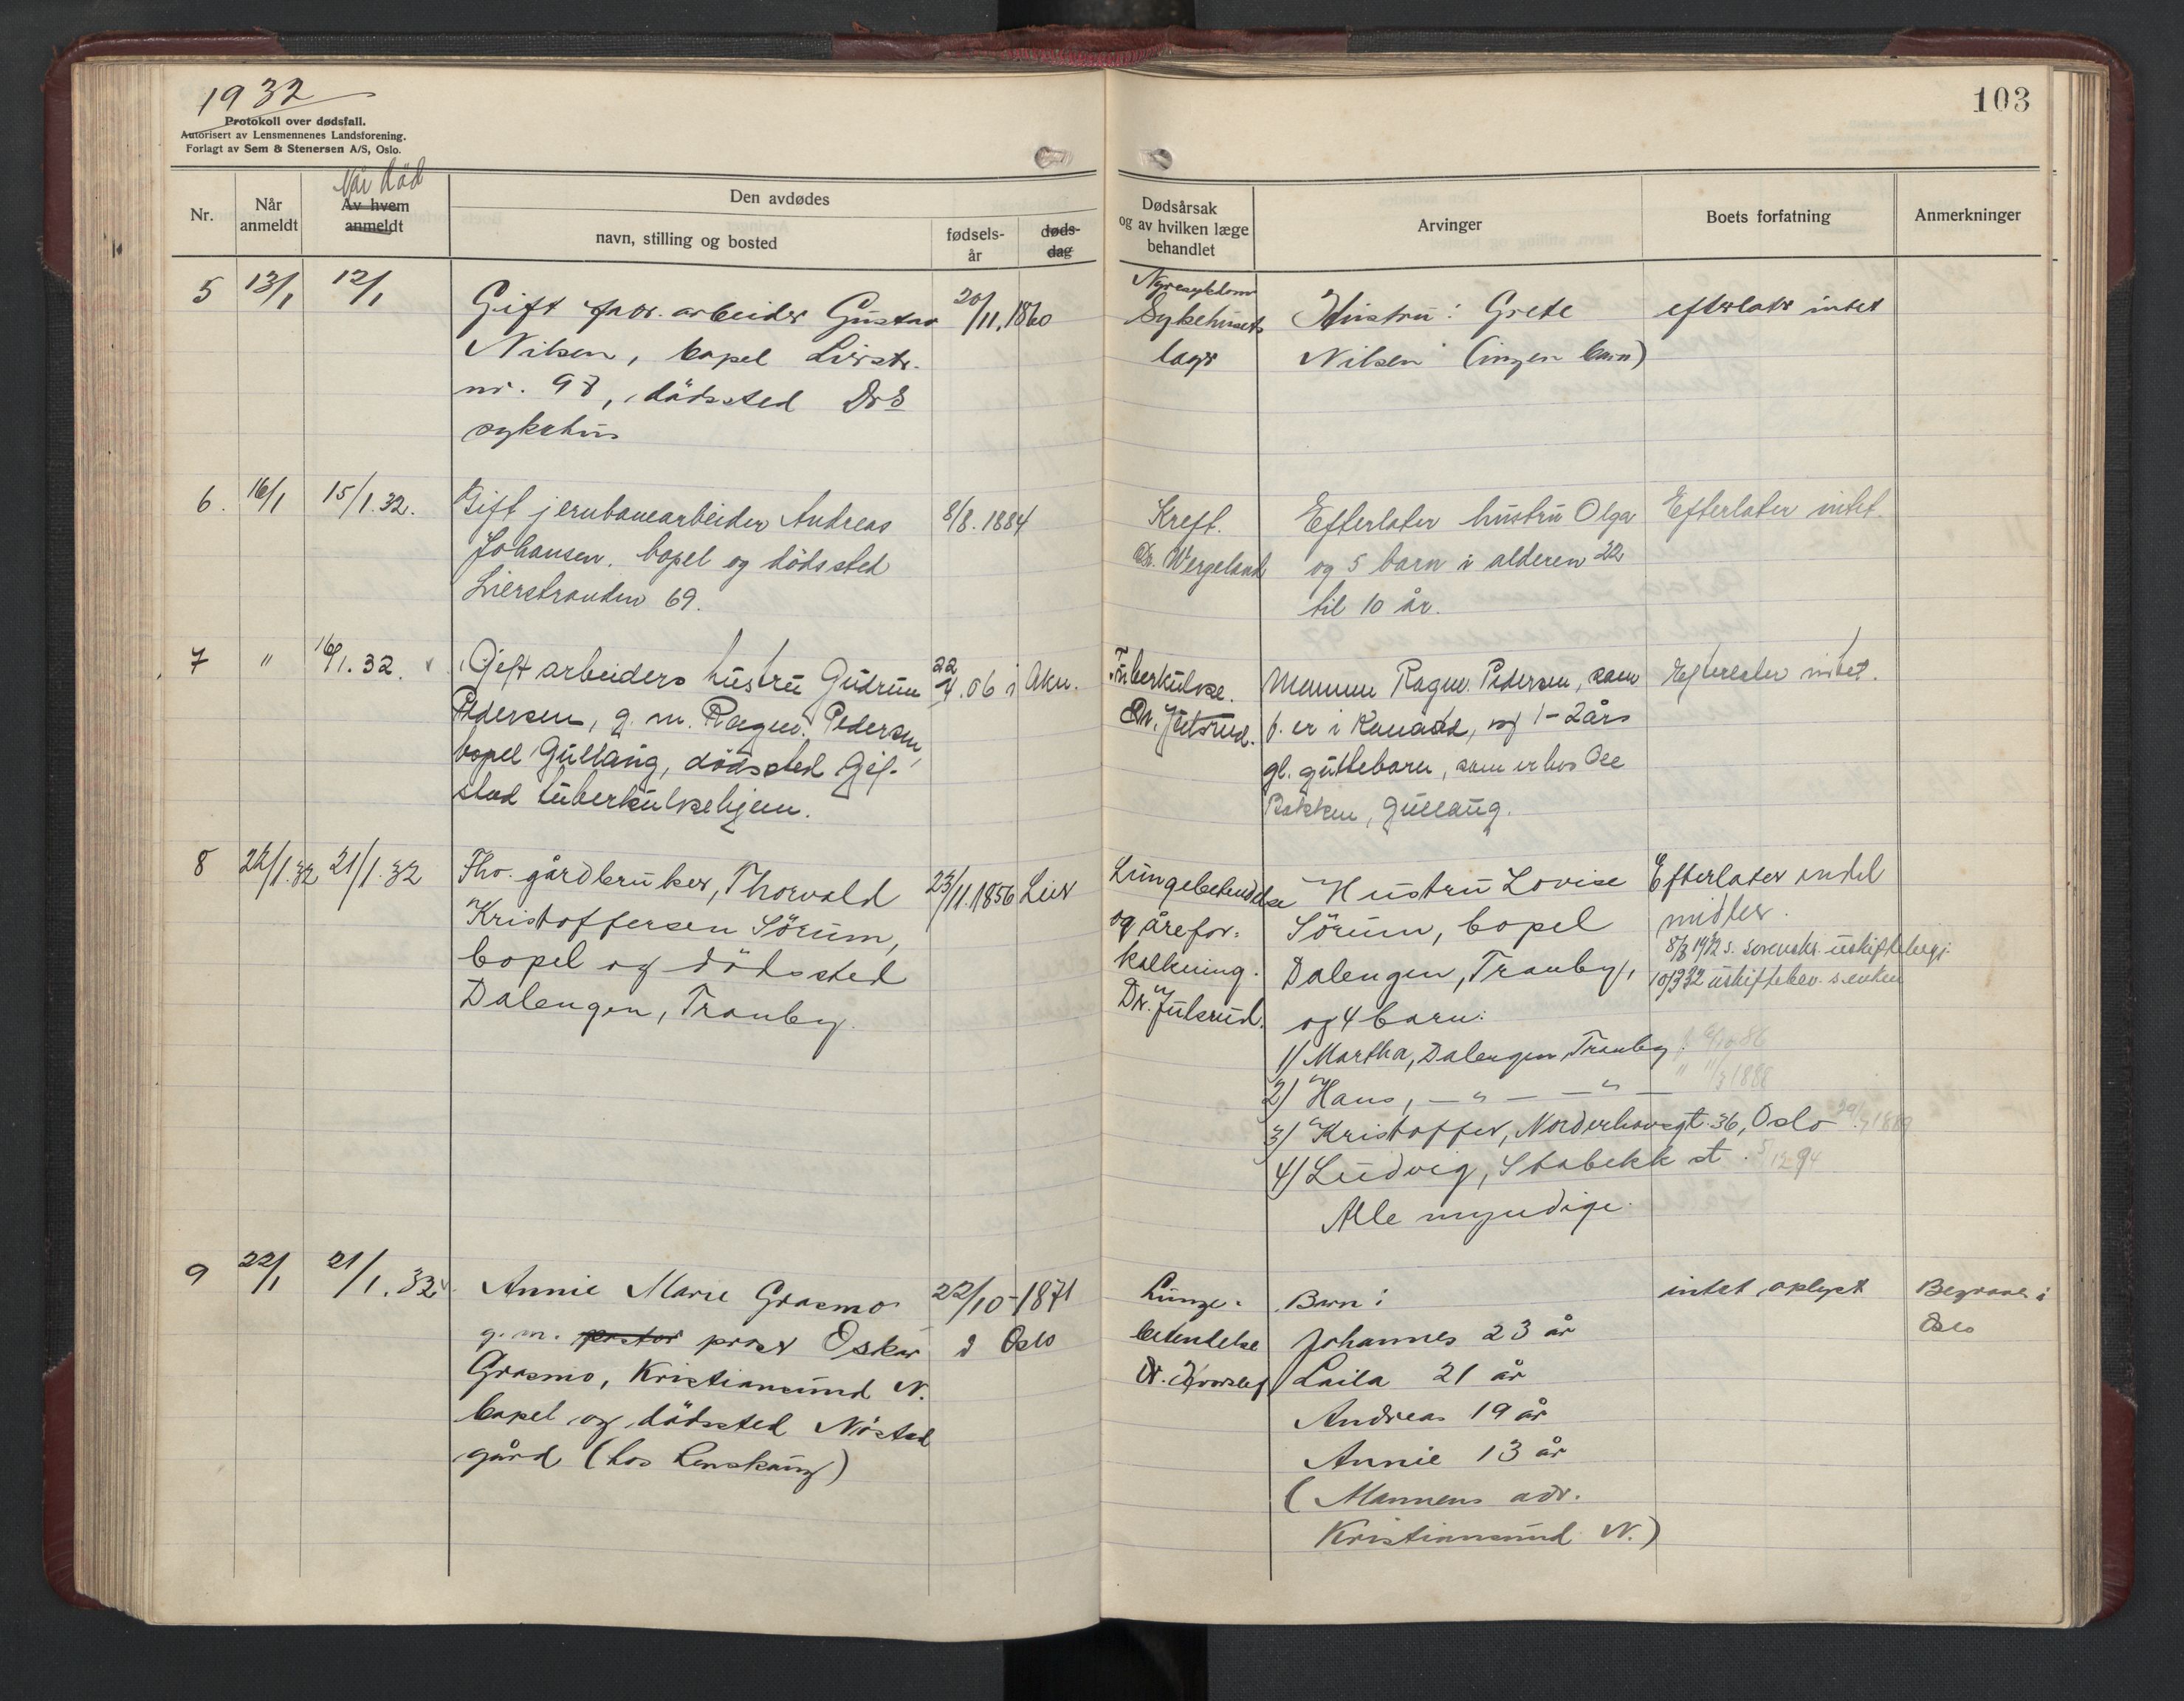 1932
103
Protokoll over dødsfall.
Autorisert av Lensmennenes Landsforening.
Forlagt av Sem & Stenersen A/S, Oslo.
Nr.
Når anmeldt
Når död
Av hvem anmeldt
Den avdødes
navn, stilling og bosted
fødsels-år
døds-dag
Dødsårsak
og av hvilken læge
behandlet
Arvinger
Boets forfatning
Anmerkninger
5 13/1 12/1
Gift arbeider Gustav
Nilsen, bopel Lierstr.
nr. 97, dödssted Drs
sykehus
20/11, 1860
Nyresykdom
Sykehusets
læge
Hustru: Grete
Nilsen (ingen barn)
efterlater intet
6. 16/1 15/1.32.
Gift jernbanearbeider Andreas
Johansen. bopel og dödssted
Lierstranden 69.
8/8. 1884
Kreft.
Dr. Wergeland
Efterlater hustru Olga
og 5 barn i alderen 22
til 10 år.
Efterlater intet.
7 " 16/1.32.
Gift arbeiders hustru Gudrun
Pedersen, g. m. Ragnv. Pedersen,
bopel Gullaug, dödssted Gif-
stad tuberkulosehjem.
22/4.06 i
Tuberkulose.
Dr. Julsrud.
Mannen Ragnv. Pedersen, som
f. er i Kanada, og 1-2 års
gl. guttebarn, som er hos Ole
Bakken, Gullaug.
Efterlater intet.
8 22/1.32 21/1.32
Fhv. gårdbruker, Thorvald
Kristoffersen Sörum,
bopel og dödssted
Dalengen, Tranby.
23/11.1856 Lier
Lungebetendelse
og årefor-
kalkning.
Dr. Julsrud.
Hustru Lovise
Sörum, bopel
Dalengen, Tranby,
og 4 barn:
1) Martha, Dalengen, Tranby.
2) Hans, — " — — " —
" 11/3 1888
3) Kristoffer, Norderhovsgt. 36, Oslo
4) Ludvig, Stabekk st. 5/12 94
Alle myndige.
Efterlater endel
midler.
8/3 1932 s. sorenskr. uskiftebegj.
10/3 32 uskiftebev. s. enken
9 22/1 21/1.32
Annie Marie Grasmo
g. m. pastor prost Oskar
Grasmo, Kristiansund N.
bopel og dödssted Nöstad
gård (hos Lenskaug)
22/10-1871
i Oslo
Lunge-
betendelse
Barn:
Johannes 23 år
Laila 21 år
Andreas 19 år
Annie 13 år
(Mannens adr.
Kristiansund N.)
intet oplyst
Begraves i
Oslo